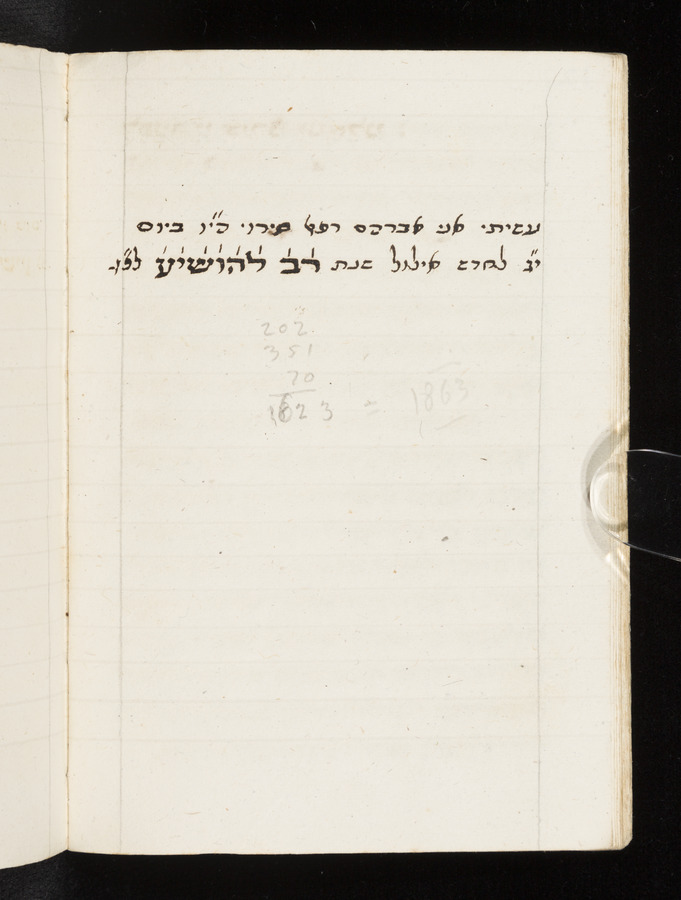 עשיתי אני אברהם רפאל פירני ה״ו ביום
י״ב לחדש אילול שנת רב להושיע לפ״ק
202
351
70
1623 = 1863